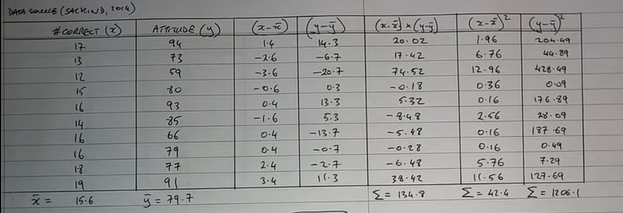 DATA SOURCE (SACKIND, 2014)
# CORRECT (x) ATTITUDE (y) (x-x̄) (y-ȳ) (x-x̄)×(y-ȳ) (x-x̄)² (y-ȳ)²
17 94 1.4 14.3 20.02 1.96 204.49
13 73 -2.6 -6.7 17.42 6.76 44.89
12 59 -3.6 -20.7 74.52 12.96 428.49
15 80 -0.6 0.3 -0.18 0.36 0.09
16 93 0.4 13.3 5.32 0.16 176.89
14 85 -1.6 5.3 -8.48 2.56 28.09
16 66 0.4 -13.7 -5.48 0.16 187.69
16 79 0.4 -0.7 -0.28 0.16 0.49
18 77 2.4 -2.7 -6.48 5.76 7.29
19 91 3.4 11.3 38.42 11.56 127.69
x̄ = 15.6 ȳ = 79.7 Σ = 134.8 Σ = 42.4 Σ = 1206.1